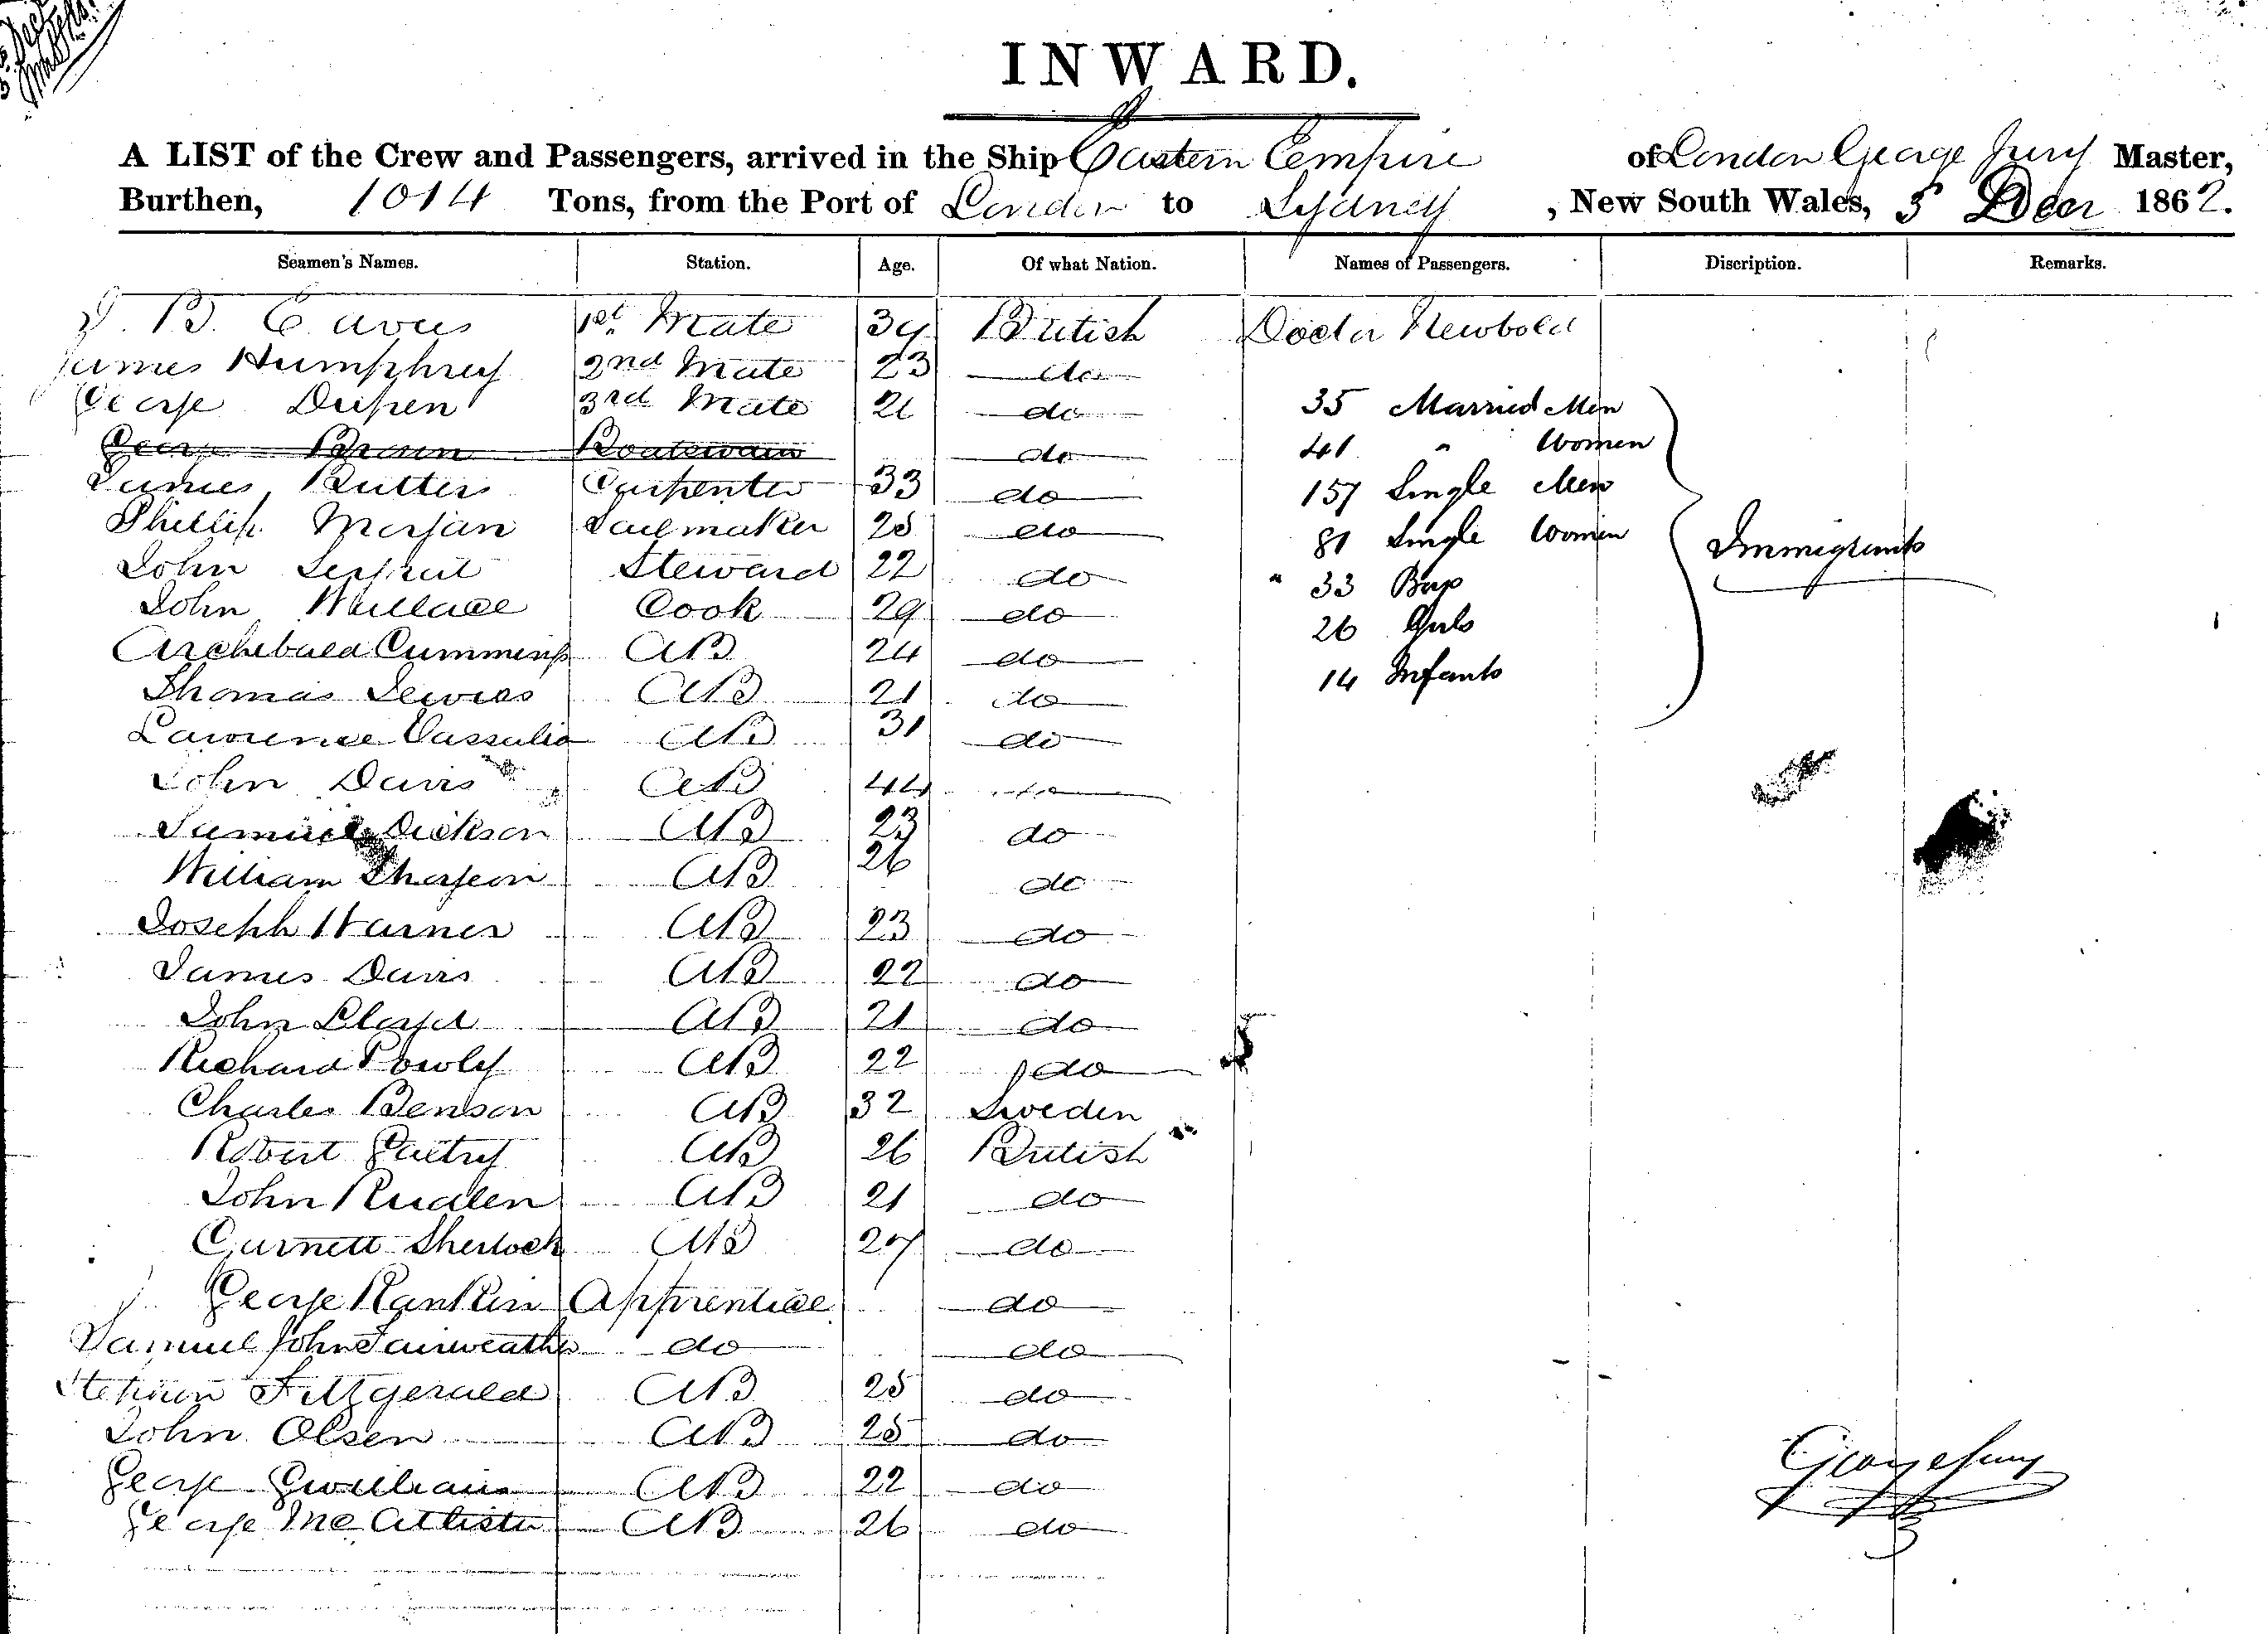 INWARD.
A LIST of the Crew and Passengers, arrived in the Ship Eastern Empire of London George Jury Master,
Burthen, 1014 Tons, from the Port of London to Sydney, New South Wales, 5 Decr 1862.
Seamen's Names. Station. Age. Of what Nation. Names of Passengers. Discription. Remarks.
B. 1st Mate 39 British Doctor Newbold
James Humphrey 2nd Mate 23 do
George 3rd Mate 21 do 35 Married Men
George Brown Boatswain do 41 " Women
James Butters Carpenter 33 do 157 Single Men
Phillip Morgan Sailmaker 25 do 81 Single Women Immigrants
John Steward 22 do " 33 Boys
John Wallace Cook 29 do 26 Girls
Archibald Cummings AB 24 do
Thomas Lewies AB 21 do 14 Infants
Lawrence AB 31 do
John Davis AB 44 do
Samuel Dickson AB 23 do
William AB 26 do
Joseph Warner AB 23 do
James Davis AB 22 do
John Lloyd AB 21 do
Richard Powly AB 22 do
Charles Benson AB 32 Sweden
Robert AB 26 British
John AB 21 do
Garnett Sherlock AB 27 do
George Rankin Apprentice do
Samuel John Fairweather do do
Stephen Fitzgerald AB 25 do
John Olsen AB 25 do
George Gwilliam AB 22 do
George McAllister AB 26 do
George Jury